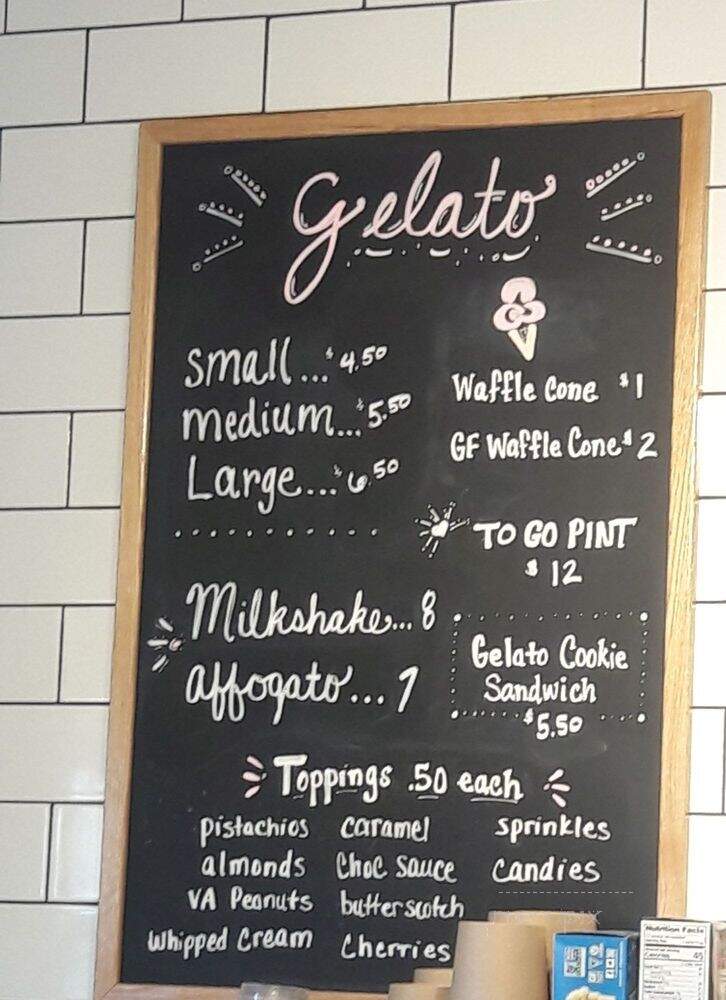 Gelato
small... $4.50
medium... $5.50
Large... $6.50
Waffle Cone $1
GF Waffle Cone $2
TO GO PINT
$12
Milkshake... 8
affogato... 7
Gelato Cookie
Sandwich
$5.50
Toppings .50 each
pistachios caramel sprinkles
almonds Choc Sauce Candies
VA Peanuts butterscotch
Whipped Cream Cherries
Nutrition Facts